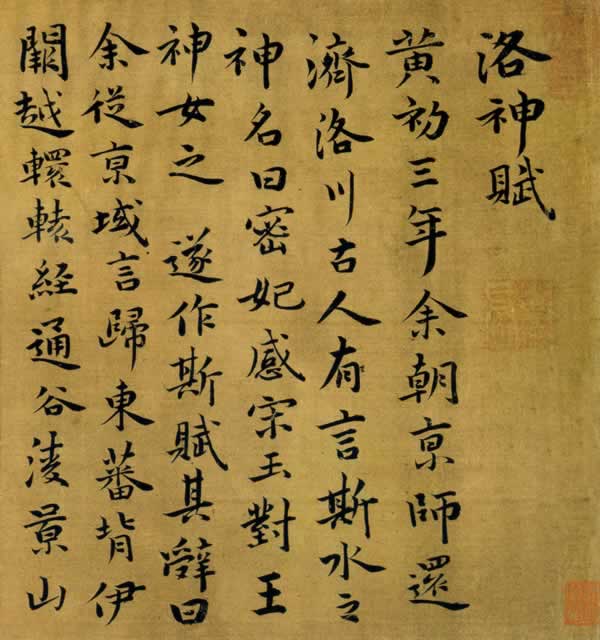 洛神賦
黄初三年余朝亰師還
濟洛川古人有言斯水之
神名曰密妃感宋玉對王
神女之 遂作斯賦其辭曰
余從亰域言歸東蕃背伊
闕越轘轅経通谷淩景山